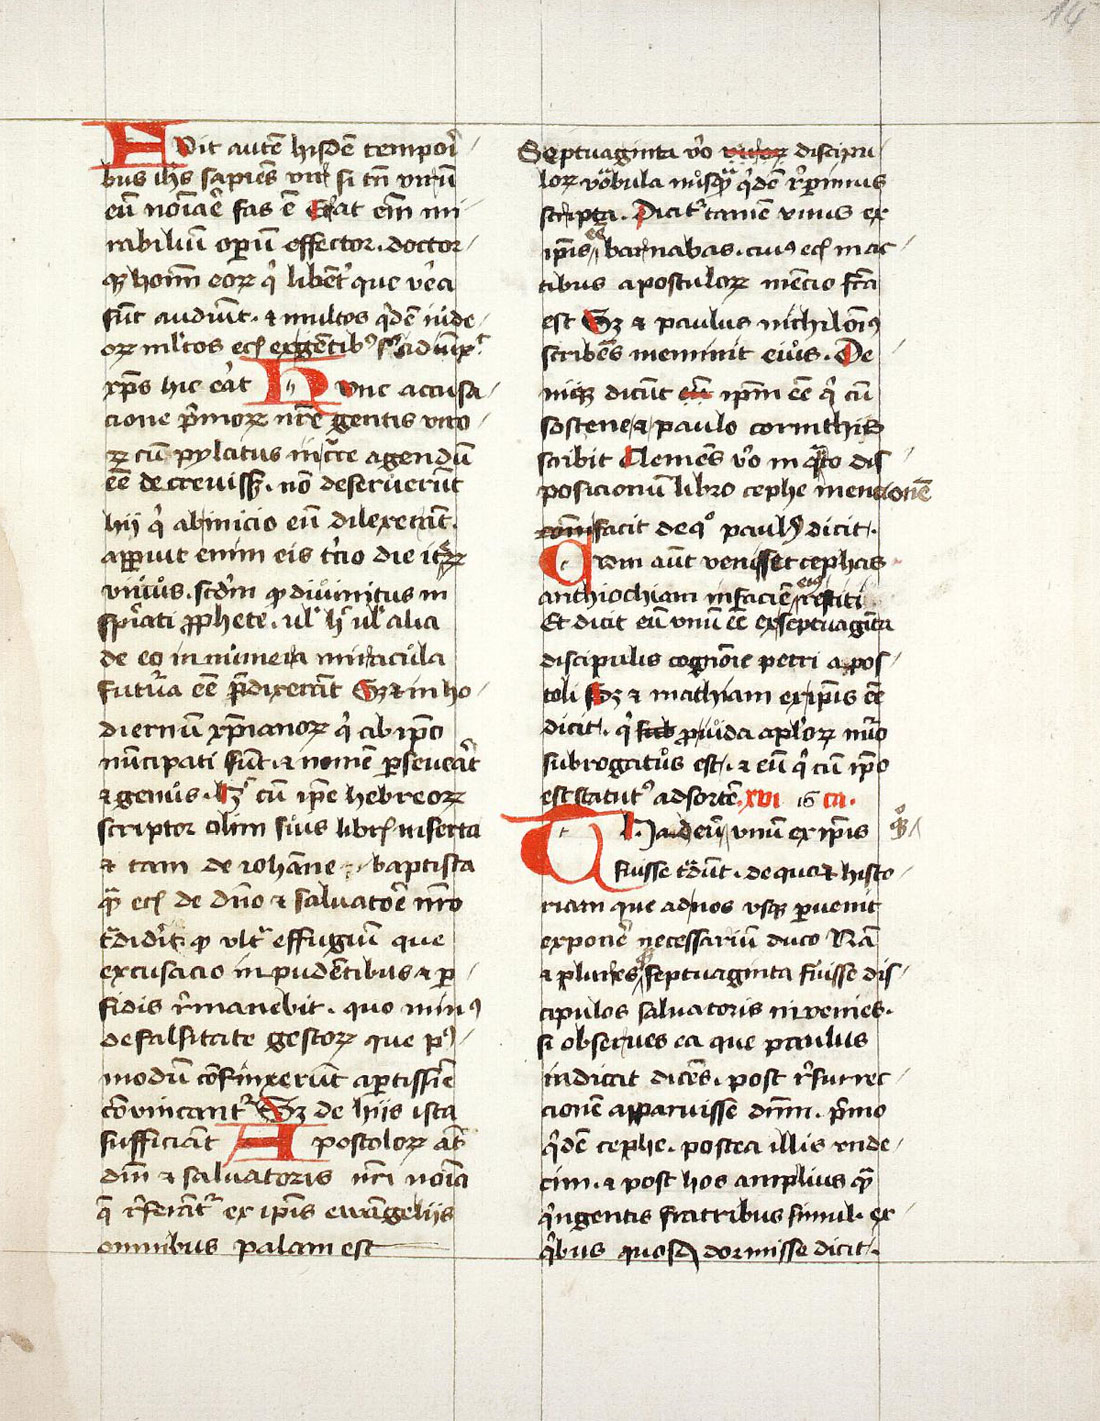 14
Fvit autē hisdē tempori
bus ihs sapiēs vir si tn̄ virū
eū noīare fas ē Erat em̄ mi
rabiliū operū effector. doctor
qꝫ hoīm eoꝝ q̇ libēt' que v'ea
sūt audiūt. ⁊ multos q'dē iude
oꝝ ml'tos
xp̄s hic erat Hunc accusa
cione p'moꝝ nr̄e gentis viro
ꝝ cū pylatus in cr̄ce agendū
eē decreuissꝫ. nō deseruerūt
hij q̇ abinicio eū dilexerāt.
apparuit enim eis t'cio die
viuus. scd'm ꝙ diuinitus in
spirati ꝓphete. ul' h' ul' alia
de eo in numera miracula
futura eē p̄dixerāt Sꝫ ⁊ in ho
diernū xp̄ianoꝝ q̇ ab ip̄o
nūcipati sūt. ⁊ nomē ꝑseuerat
⁊ genus. h' cū ip̄e hebreoꝝ
scriptor olim suis libris inserta
⁊ tam de iohāne baptista
qꝫ de dn̄o ⁊ saluatore nr̄o
t'didit. ꝙ vlt' effugiū que
excusacio inpudētibus ⁊ ꝑ
fidis r'manebit. quo minꝰ
de falsitate gestoꝝ que
modū cōfinxerūt aptissi͞e
cōuincantʳ Sꝫ de hiis ista
sufficiāt Apostoloꝝ
dn̄i ⁊ saluatoris nr̄i noīa
r'ferātʳ ex ip̄is ewāgeliis
omnibus palam est
Septuaginta v'o discipu
loꝝ vocabula nusqꝫ q'dē r'perimus
scripta. Dicitʳ tamē vnus ex
ip̄is barnabas. cuiꝰ in ac
tibus apostoloꝝ mēcio fc̄a
est Sꝫ ⁊ paulus nichilomiꝰ
scribēs meminit eius. De
niqꝫ dicūt ip̄m eē q̇ cū
sostene ⁊ paulo corinthiis
scribit Clemēs v'o in q̇to dis
posicionū libro cephe mencionē
facit de qͦ paulꝰ dicit.
Cvm aūt venisset cephas
anthiochiam in faciē ei restiti
Et dicit eū vnū eē ex septuaginta
discipulis cognoīe petri apos
toli Sꝫ ⁊ mathiam ex ip̄is eē
dicit. q̇ ꝓ iuda ap̄loꝝ nūo
subrogatus est. ⁊ eū q̇ cū ip̄o
est statutꝰ ad sortē. xvi ca.
Thadeū vnū ex ip̄is
fuisse t'dūt. de quo ⁊ histo
riam que ad nos vsqꝫ ꝑuenit
exponere necessariū duco Nā
⁊ plures septuaginta fuisse dis
cipulos saluatoris inuenies.
si obserues ea que paulus
indicat dicēs. post r'surrec
cionē apparuisse dn̄m. p'mo
q'dē cephe. postea illis vnde
cim. ⁊ post hos amplius qꝫ
q'ngentis fratribus simul. ex
q'bus quosdā dormisse dicit.